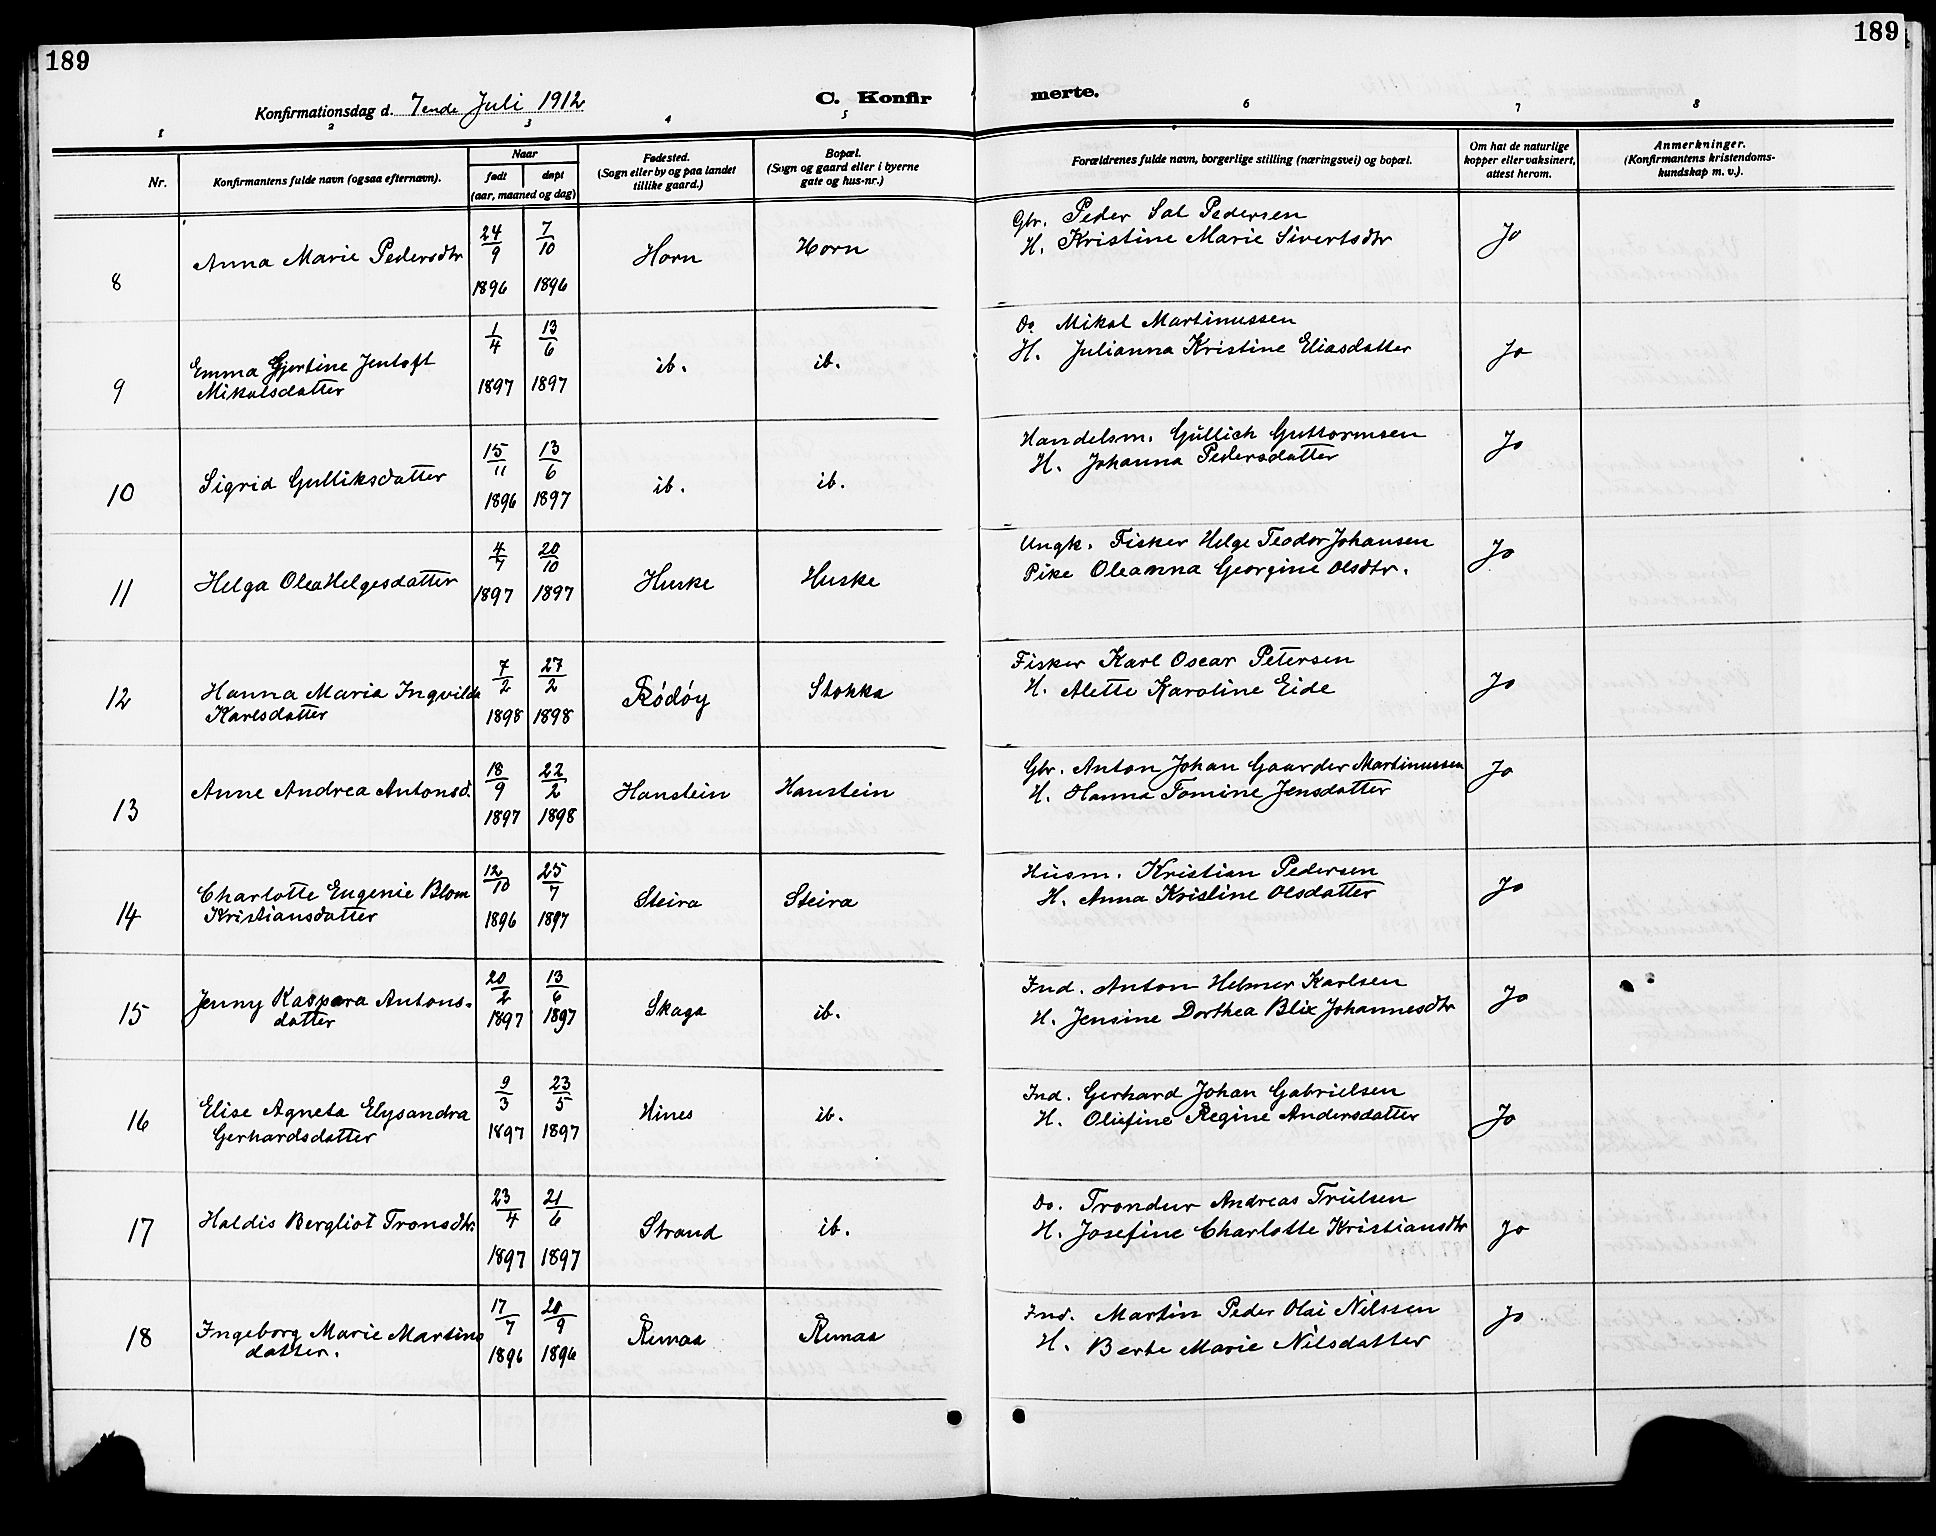 189
189
Konfirmationsdag d. 7ende Juli 1912
C. Konfir
merte.
1 2 3 4 5 6 7 8
Nr.
Konfirmantens fulde navn (ogsaa efternavn).
Naar
født
døpt
(aar, maaned og dag)
Fødested.
(Sogn eller by og paa landet
tillike gaard.)
Bopæl.
(Sogn og gaard eller i byerne
gate og hus-nr.)
Forældrenes fulde navn, borgerlige stilling (næringsvei) og bopæl.
Om hat de naturlige
kopper eller vaksinert,
attest herom.
Anmerkninger.
(Konfirmantens kristendoms-
kundskap m. v.).
8 Anna Marie Pedersdtr 24/9 1896 7/10 1896 Horn Horn
Gbr. Peder Sal Pedersen
H. Kristine Marie Sivertsdtr
Jo
9 Emma Gjertine Jentoft
Mikalsdatter
1/4 1897 13/6 1897 ib. ib.
Do Mikal Martinussen
H. Julianna Kristine Eliasdatter
Jo
10 Sigrid Gulliksdatter 15/11 1896 13/6 1897 ib. ib.
Handelsm. Gullich Guttormsen
H. Johanna Pedersdatter
Jo
11 Helga Olea Helgesdatter 4/7 1897 20/10 1897 Huske Huske
Ungk. Fisker Helge Teodor Johansen
Pike Oleanna Georgine Olsdtr.
Jo
12 Hanna Maria Ingvilda
Karlsdatter
7/2 1898 27/2 1898 Rödöy Stokka
Fisker Karl Oscar Petersen
H. Alette Karoline Eide
Jo
13 Anne Andrea Antonsd. 18/9 1897 22/2 1898 Hanstein Hanstein
Gbr. Anton Johan Gaarder Martinussen
H. Hanna Tomine Jensdatter
Jo
14 Charlotte Eugenie Blom
Kristiansdatter
12/10 1896 25/7 1897 Steira Steira
Husm. Kristian Pedersen
H. Anna Kristine Olsdatter
Jo
15 Jenny Kaspara Antons-
datter
20/2 1897 13/6 1897 Skaga ib.
Ind. Anton Helmer Karlsen
H. Jensine Dorthea Blix Johannesdtr
Jo
16 Elise Agneta Elysandra
Gerhardsdatter
9/3 1897 23/5 1897 Hines ib.
Ind. Gerhard Johan Gabrielsen
H. Olufine Regine Andersdatter
Jo
17 Haldis Bergliot Tronsdtr. 23/4 1897 21/6 1897 Strand ib.
Do. Trondur Andreas Trulsen
H. Josefine Charlotte Kristiansdtr
Jo
18 Ingeborg Marie Martins
datter.
17/7 1896 20/9 1896 Remaa Remaa
Ind. Martin Peder Olai Nilssen
H. Berte Marie Nilsdatter
Jo